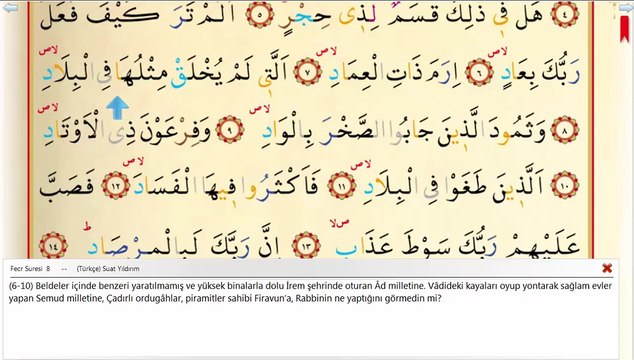 هَلْ فٖي ذٰلِكَ قَسَمٌ لِذٖي حِجْرٍ ﴿٥﴾ اَلَمْ تَرَ كَيْفَ فَعَلَ ﴿٤﴾
رَبُّكَ بِعَادٍ ﴿٦﴾ اِرَمَ ذَاتِ الْعِمَادِ ﴿٧﴾ اَلَّتٖي لَمْ يُخْلَقْ مِثْلُهَا فِي الْبِلَادِ
﴿٨﴾ وَثَمُودَ الَّذٖينَ جَابُوا الصَّخْرَ بِالْوَادِ ﴿٩﴾ وَفِرْعَوْنَ ذِي الْاَوْتَادِ
﴿١٠﴾ اَلَّذٖينَ طَغَوْا فِي الْبِلَادِ ﴿١١﴾ فَاَكْثَرُوا فٖيهَا الْفَسَادَ ﴿١٢﴾ فَصَبَّ
عَلَيْهِمْ رَبُّكَ سَوْطَ عَذَابٍ ﴿١٣﴾ اِنَّ رَبَّكَ لَبِالْمِرْصَادِ ﴿١٤﴾
Fecr Suresi 8 -- (Türkçe) Suat Yıldırım
(6-10) Beldeler içinde benzeri yaratılmamış ve yüksek binalarla dolu İrem şehrinde oturan Âd milletine. Vâdideki kayaları oyup yontarak sağlam evler
yapan Semud milletine, Çadırlı ordugâhlar, piramitler sahibi Firavun’a, Rabbinin ne yaptığını görmedin mi?